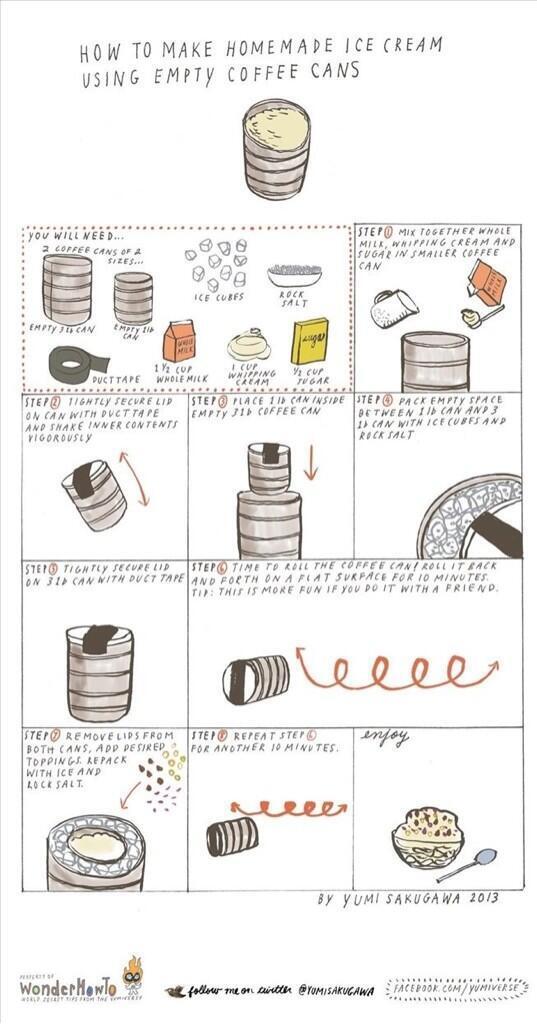 HOW TO MAKE HOMEMADE ICE CREAM
USING EMPTY COFFEE CANS
YOU WILL NEED...
2 COFFEE CANS OF 2
SIZES...
EMPTY 3 lb CAN
EMPTY 1 lb
CAN
ICE CUBES
ROCK
SALT
DUCT TAPE
WHOLE
MILK
1 ½ CUP
WHOLE MILK
1 CUP
WHIPPING
CREAM
sugar
½ CUP
SUGAR
STEP 1 MIX TOGETHER WHOLE
MILK, WHIPPING CREAM AND
SUGAR IN SMALLER COFFEE
CAN
WHOLE
MILK
STEP 2 TIGHTLY SECURE LID
ON CAN WITH DUCT TAPE
AND SHAKE INNER CONTENTS
VIGOROUSLY
STEP 3 PLACE 1 lb CAN INSIDE
EMPTY 3 lb COFFEE CAN
STEP 4 PACK EMPTY SPACE
BETWEEN 1 lb CAN AND 3
lb CAN WITH ICE CUBES AND
ROCK SALT
STEP 5 TIGHTLY SECURE LID
ON 3 lb CAN WITH DUCT TAPE
STEP 6 TIME TO ROLL THE COFFEE CAN! ROLL IT BACK
AND FORTH ON A FLAT SURFACE FOR 10 MINUTES.
TIP: THIS IS MORE FUN IF YOU DO IT WITH A FRIEND.
STEP 7 REMOVE LIDS FROM
BOTH CANS, ADD DESIRED
TOPPINGS. REPACK
WITH ICE AND
ROCK SALT.
STEP 8 REPEAT STEP 6
FOR ANOTHER 10 MINUTES.
enjoy
BY YUMI SAKUGAWA 2013
PROPERTY OF
WonderHowTo
WORLD SECRET TIPS FROM THE YUMIVERSE
follow me on twitter @YUMISAKUGAWA
FACEBOOK.COM/YUMIVERSE